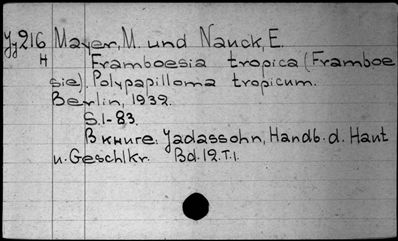 Jy216 Mayer, M. und Nauck, E.
H Framboesia tropica (Framboe
sie). Polypapilloma tropicum.
Berlin, 1932.
S. 1-83.
В книге: Jadassohn, Handb. d. Haut
u. Geschlkr. Bd. 12. T. 1.